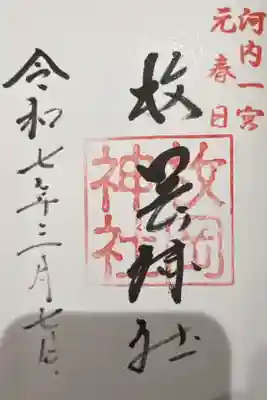 河内一宮
元春日
枚岡神社
枚岡神社
令和七年三月七日